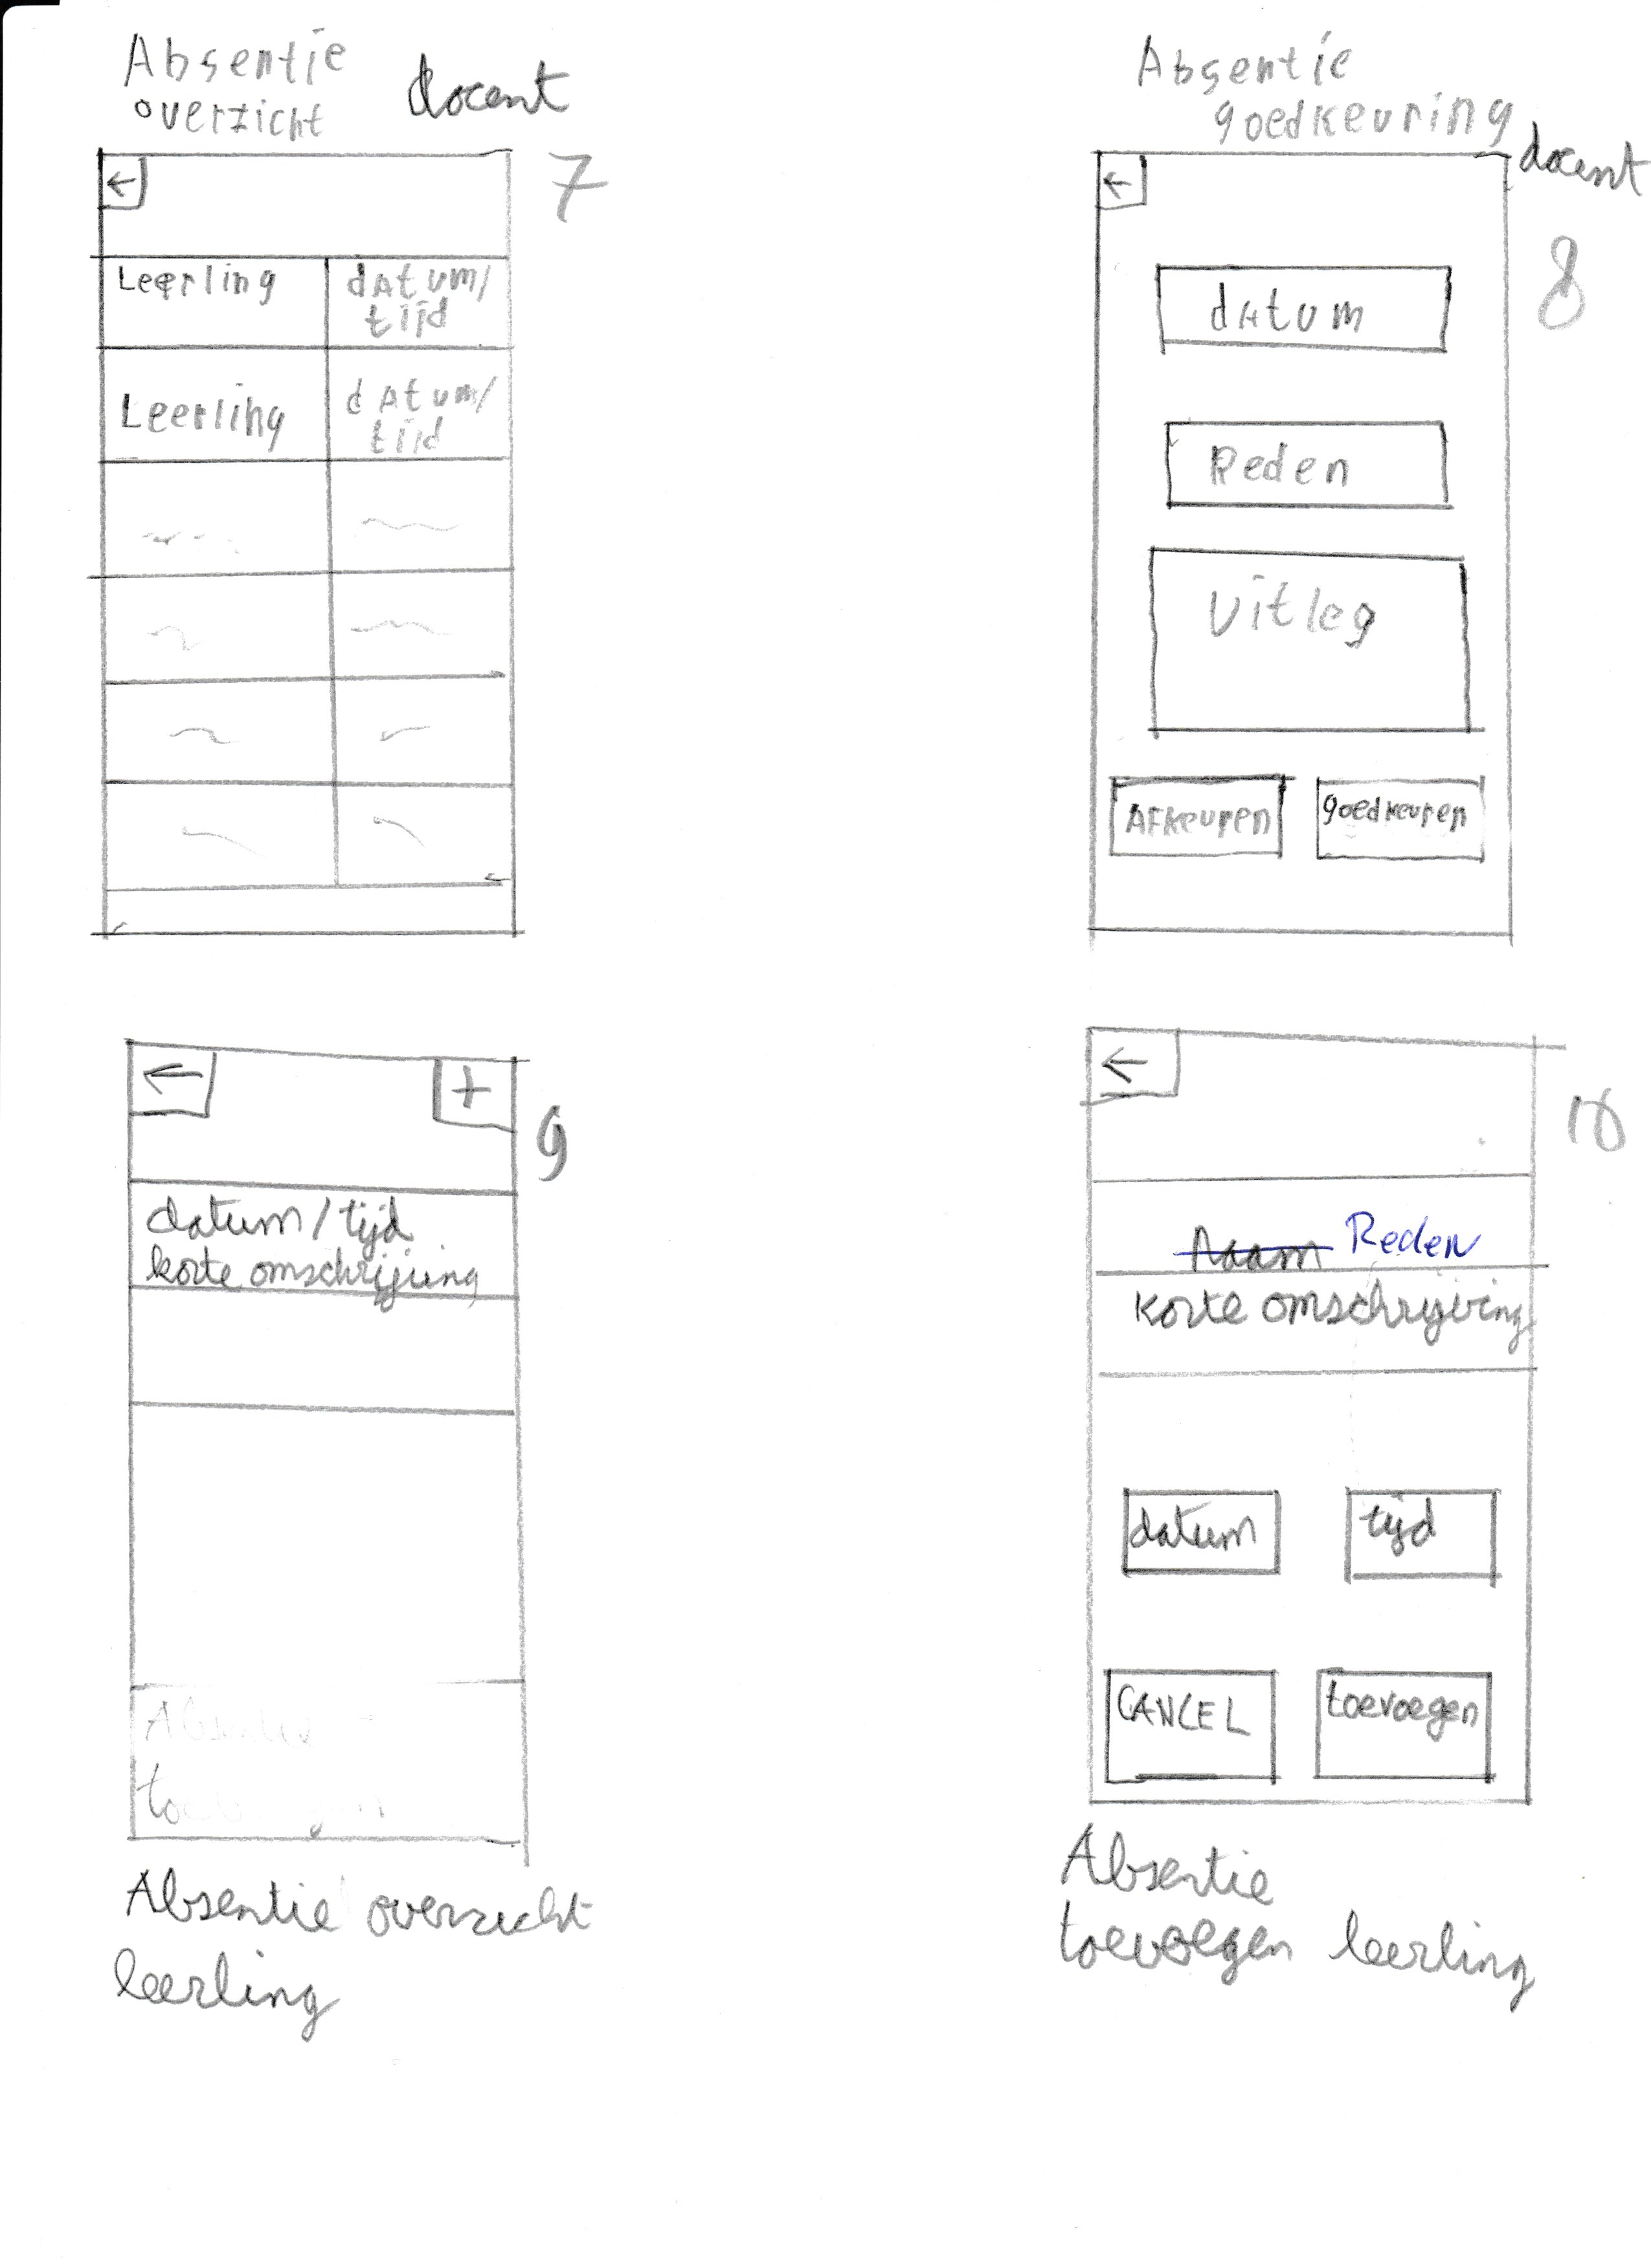 Absentie
overzicht
docent
7
Leerling
datum/
tijd
Leerling
datum/
tijd
Absentie
goedkeuring
docent
8
datum
Reden
Uitleg
Afkeuren
goedkeuren
+
9
datum/tijd
korte omschrijving
Absentie
toevoegen
Absentie overzicht
leerling
10
Naam Reden
korte omschrijving
datum
tijd
CANCEL
toevoegen
Absentie
toevoegen leerling